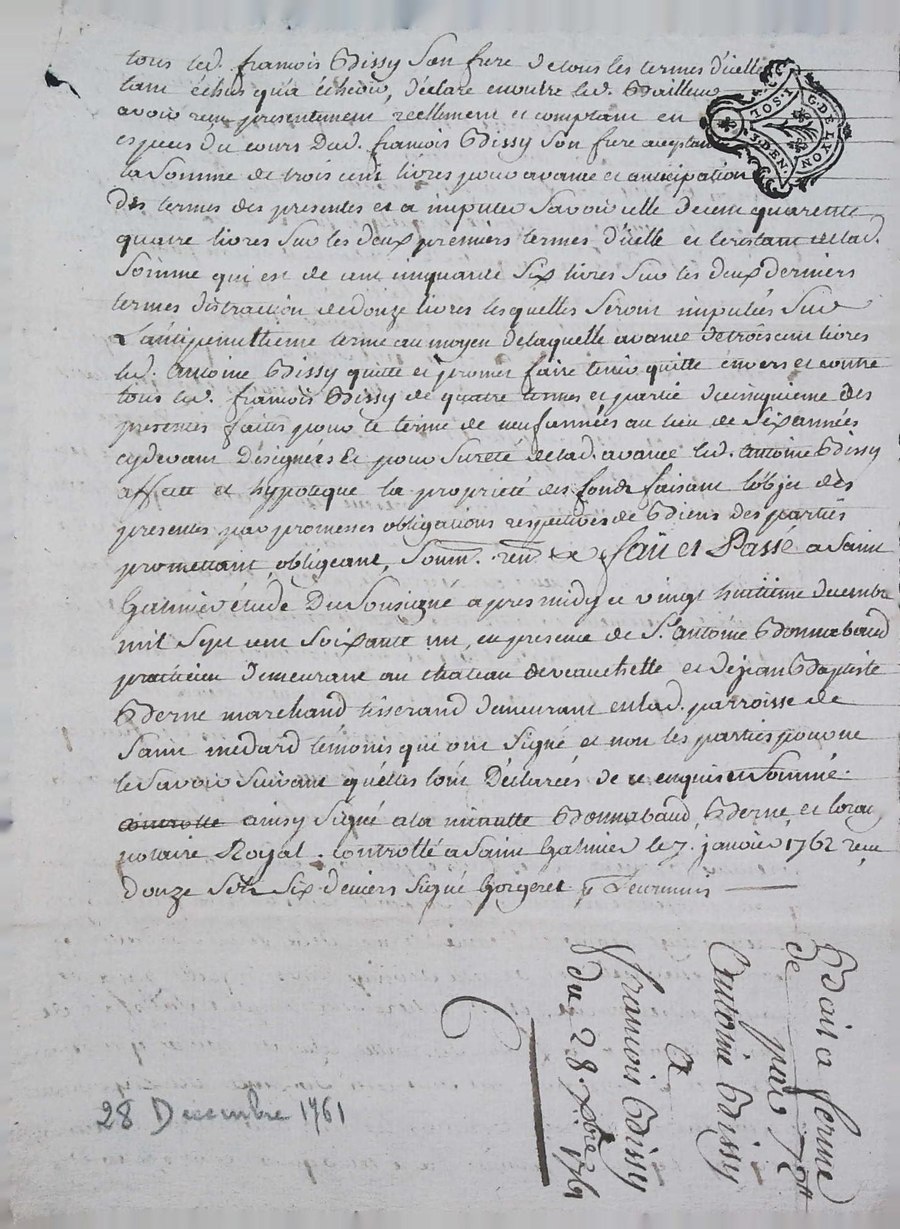 tous led. francois Bissy son frere de tous les termes d'icelle
tant échus qu'a échéoir, déclare encontre led. Bailleur
avoir reçu presentement reellement et comptant en
especes du cours dud. francois Bissy son frere acceptant
la somme de trois cent livres pour avance et anticipation
des termes des presentes et a imputer savoir celle de cent quarente
quatre livres sur les deux premiers termes d'icelle et le restant de lad.
somme qui est de cent cinquante six livres sur les deux derniers
termes distraction de douze livres lesquelles seront imputées sur
L'antipenultieme terme au moyen de laquelle avance de trois cent livres
led. antoine Bissy quitte et promet faire tenir quitte envers et contre
tous led. francois Bissy de quatre termes et partie du cinquieme des
presentes faites pour le terme de neuf années au lieu de six années
cydevant désignées Et pour sureté de lad. avance led. antoine Bissy
affecte et hypoteque la propriété des fonds faisant l'objet des
presentes par promesses obligations respectives de Biens des parties
promettant, obligeant, soum. ren. &a fait et Passé a Saint
Galmier étude du soussigné apres midy ce vingt huitième decembre
mil sept cent soixante un, en presence de Sr. antoine Bonnabaud
praticien demeurant au chateau de veauchette et de jean Baptiste
Berne marchand tisserand demeurant en lad. parroisse de
Saint medard temoins qui ont signé et non les parties pour ne
le savoir suivant qu'elles l'ont déclarées de ce enquis et sommé.
controllé ainsy signé a la minutte Bonnabaud, Berne, et
notaire Royal. controllé a Saint Galmier le 7. janvier 1762 reçu
douze sols six deniers signé Gorgeret
G. DE LYON
2 SOLS
4 DEN.
Bail a ferme
de par 72lt
Antoine Bissy
a
francois Bissy
du 28. Xbre 1761
28 Decembre 1761